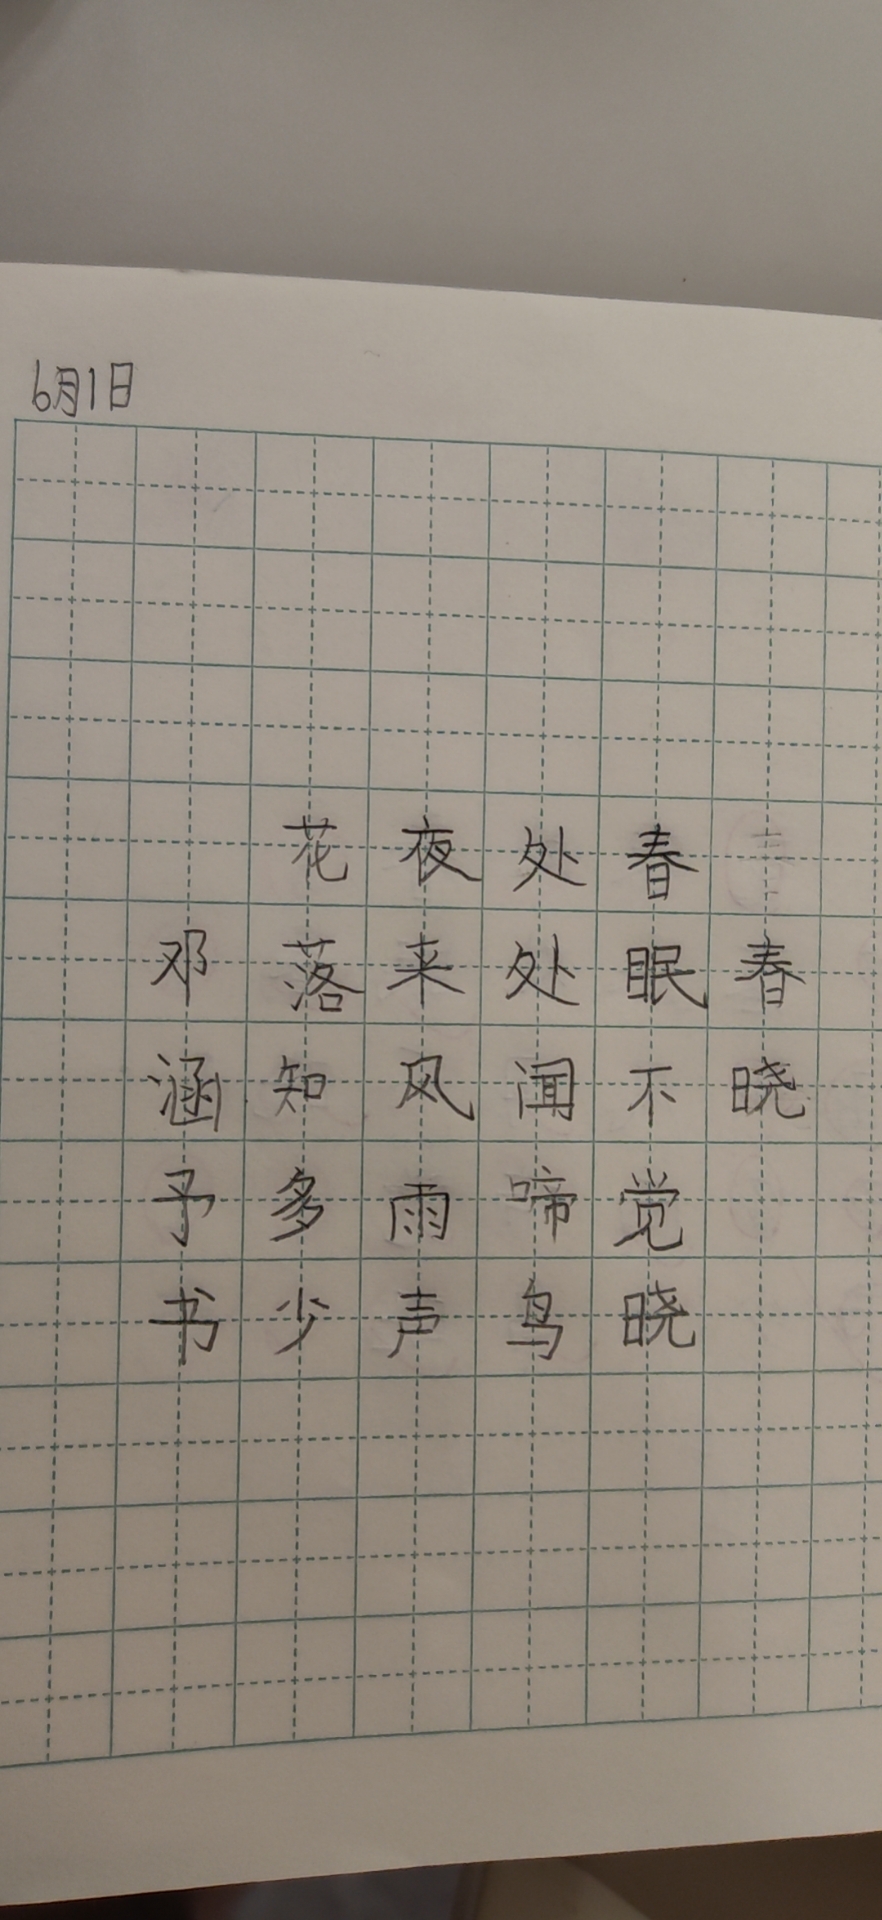 6月1日
春晓
春眠不觉晓
处处闻啼鸟
夜来风雨声
花落知多少
邓涵予书